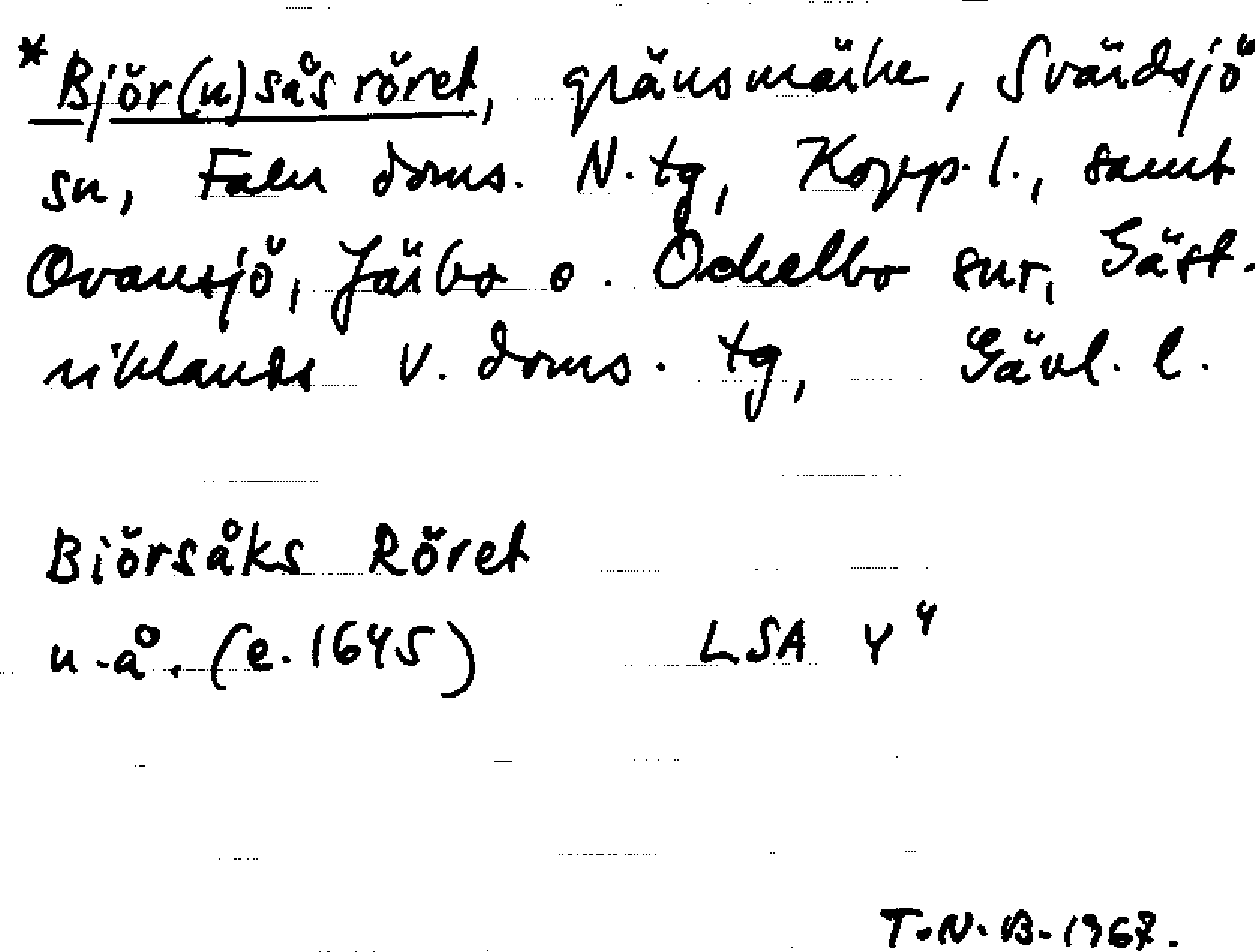 *Björ(n)såsröret, gränsmärke, Svärdsjö
sn, Falu doms. N. tg, Kopp. l., samt
Ovansjö, Järbo o. Ockelbo snr, Gäst-
riklands V. doms. tg, Gävl. l.
Biörsåks Röret
u.å. (e. 1645) LSA Y 4
T.N.B. 1967.